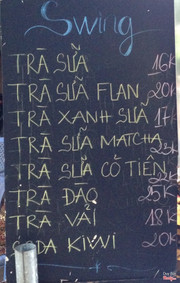 Swing
TRÀ SỮA 16K
TRÀ SỮA FLAN 20K
TRÀ XANH SỮA 17K
TRÀ SỮA MATCHA 22K
TRÀ SỮA CÔ TIÊN
TRÀ ĐÀO 25K
TRÀ VẢI 18K
SODA KIWI 20K